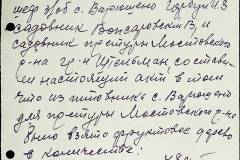 шеф Зоб с. Варюшено Горбун И.З
садовник Бонсаровский В, и
садовник прк-туры Мостовского
р-на гр-н Штельман состави-
ли настоящий акт в том
что из питомника с. Варюшено
для прк-туры Мостовского р-на
было взято фруктовое дерево
в количестве: